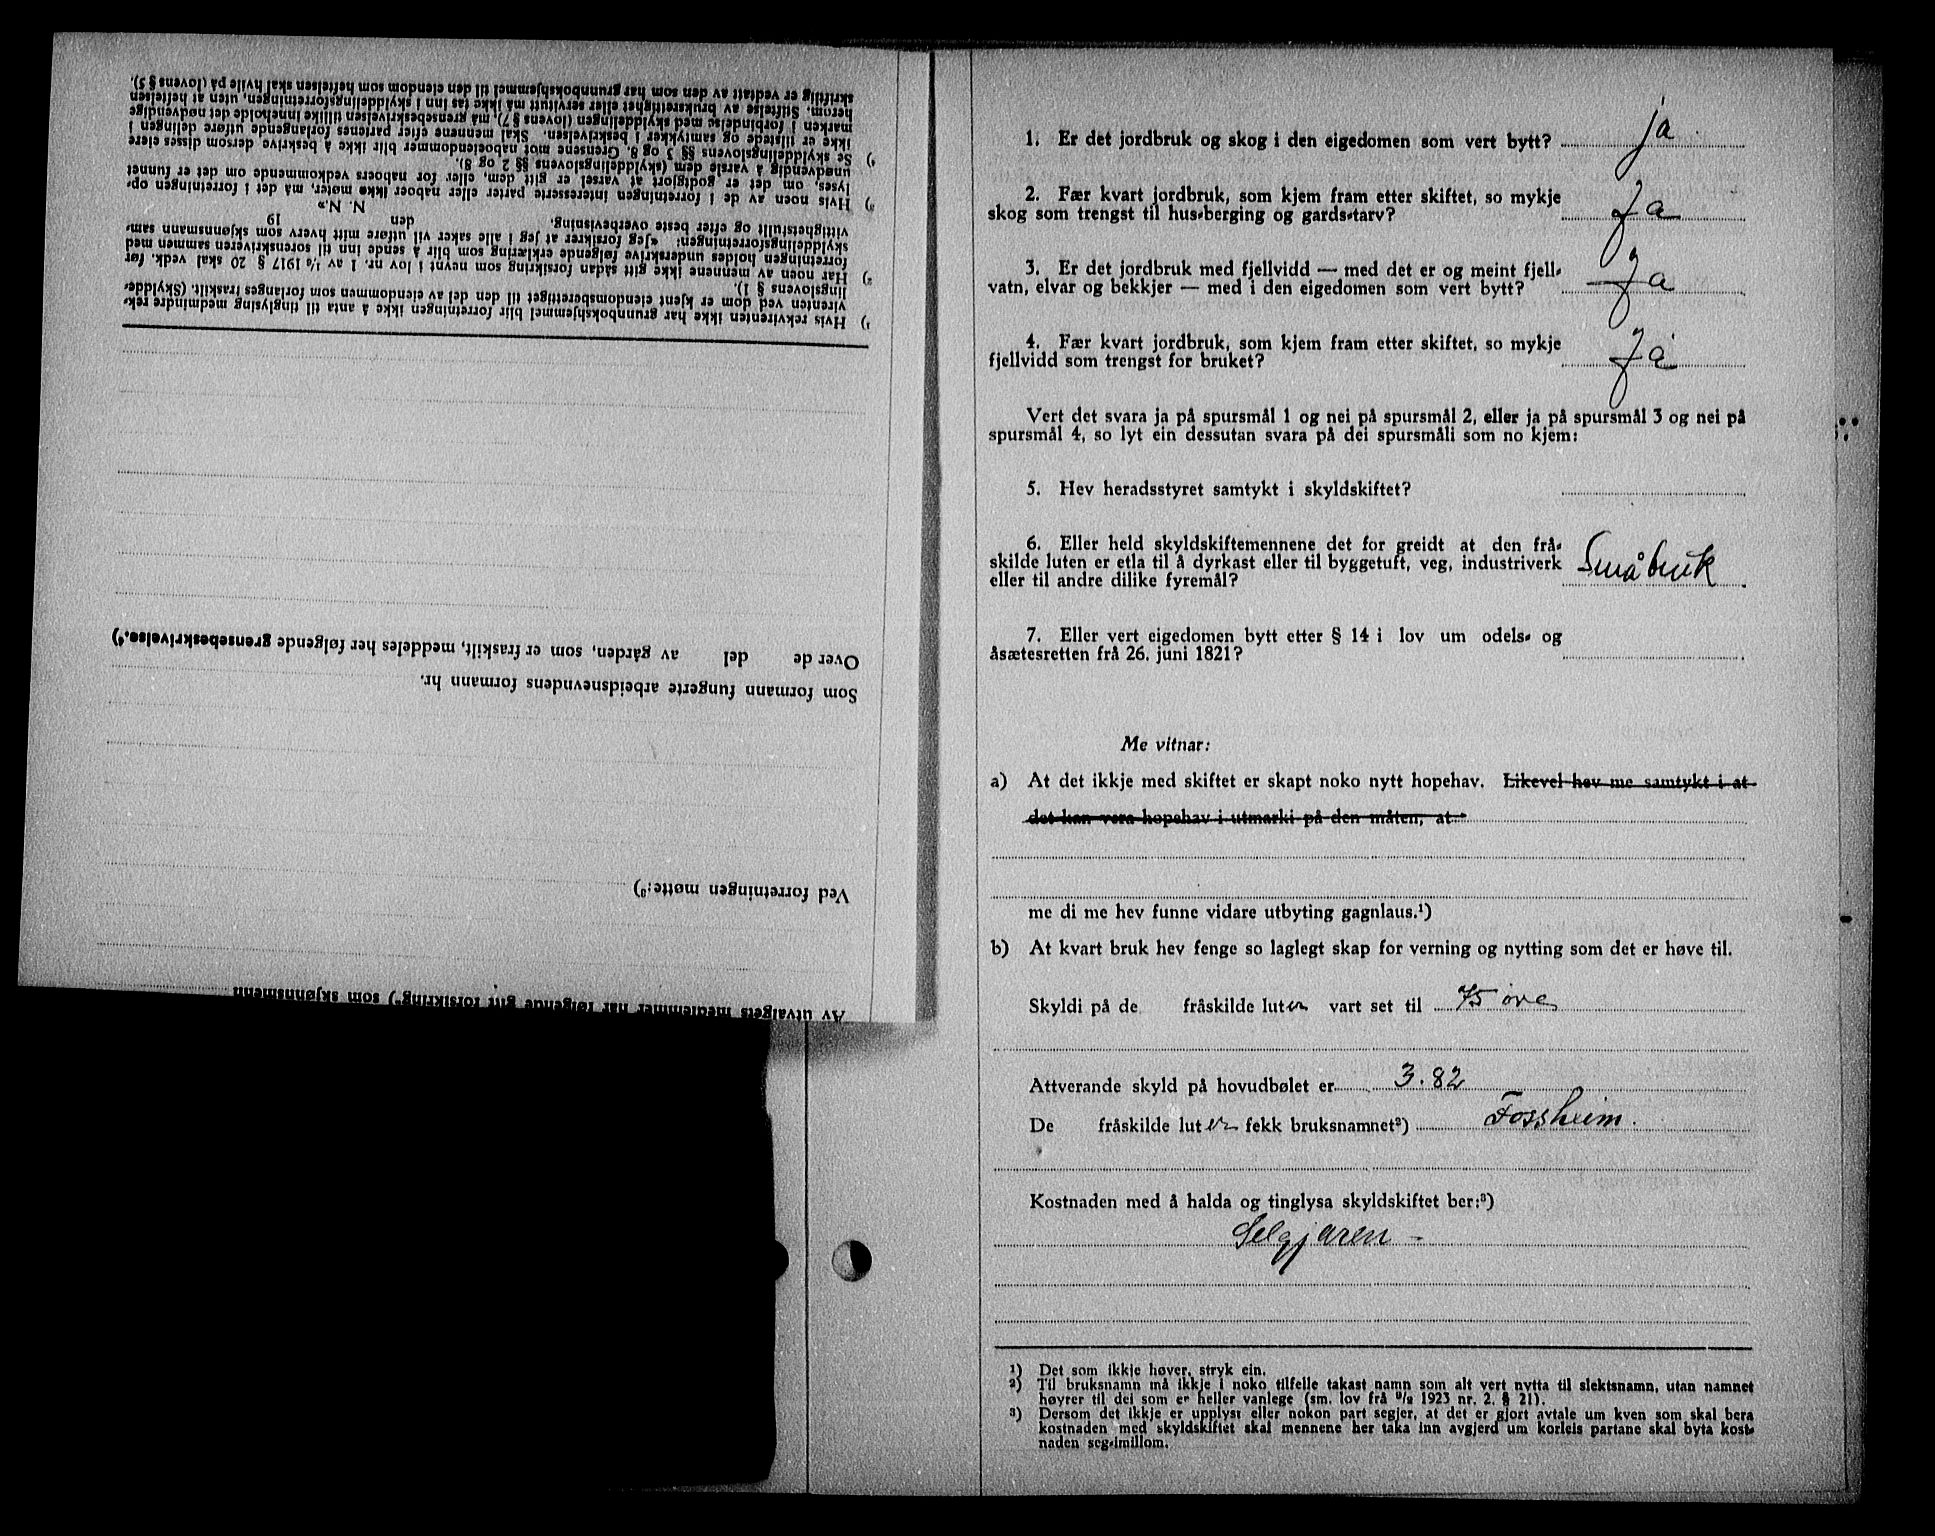 1. Er det jordbruk og skog i den eigedomen som vert bytt? ja
2. Fær kvart jordbruk, som kjem fram etter skiftet, so mykje
skog som trengst til hus-berging og gards-tarv? Ja
3. Er det jordbruk med fjellvidd — med det er og meint fjell-
vatn, elvar og bekkjer — med i den eigedomen som vert bytt? Ja
4. Fær kvart jordbruk, som kjem fram etter skiftet, so mykje
fjellvidd som trengst for bruket? Ja
Vert det svara ja på spursmål 1 og nei på spursmål 2, eller ja på spursmål 3 og nei på
spursmål 4, so lyt ein dessutan svara på dei spursmåli som no kjem:
5. Hev heradsstyret samtykt i skyldskiftet?
6. Eller held skyldskiftemennene det for greidt at den frå-
skilde luten er etla til å dyrkast eller til byggetuft, veg, industriverk
eller til andre dilike fyremål? Småbruk
7. Eller vert eigedomen bytt etter § 14 i lov um odels- og
åsætesretten frå 26. juni 1821?
Me vitnar:
a) At det ikkje med skiftet er skapt noko nytt hopehav. Likevel hev me samtykt i at
det kan vera hopehav i utmarki på den måten, at
me di me hev funne vidare utbyting gagnlaus.¹)
b) At kvart bruk hev fenge so laglegt skap for verning og nytting som det er høve til.
Skyldi på de fråskilde luten vart set til 75 øre
Attverande skyld på hovudbølet er 3.82
De fråskilde luten fekk bruksnamnet²) Fossheim.
Kostnaden med å halda og tinglysa skyldskiftet ber:³)
Selgjaren -
¹) Det som ikkje høver, stryk ein.
²) Til bruksnamn må ikkje i noko tilfelle takast namn som alt vert nytta til slektsnamn, utan namnet
høyrer til dei som er heller vanlege (sm. lov frå 9/2 1923 nr. 2. § 21).
³) Dersom det ikkje er upplyst eller nokon part segjer, at det er gjort avtale um kven som skal bera
kostnaden med skyldskiftet skal mennene her taka inn avgjerd um korleis partane skal byta kost-
naden seg-imillom.
Av utvalgets medlemmer har følgende gitt forsikring²) som skjønnsmenn
Ved forretningen møtte:³)
Som formann fungerte arbeidsnevndens formann hr.
Over de del av gården, som er fraskilt, meddeles her følgende grensebeskrivelse.⁴)
¹) Hvis rekvirenten ikke har grunnbokshjemmel blir forretningen ikke å anta til tinglysing medmindre rek-
virenten ved dom er kjent eiendomsberettiget til den del av eiendommen som forlanges fraskilt (Skylddel-
lingslovens § 1).
²) Har noen av mennene ikke gitt sådan forsikring som nevnt i lov nr. 1 av 1/6 1917 § 20 skal vedk. før
forretningen holdes underskrive følgende erklæring som blir å sende inn til sorenskriveren sammen med
skylddelingsforretningen: «Jeg forsikrer at jeg i alle saker vil utføre mitt hverv som skjønnsmann sam-
vittighetsfullt og efter beste overbevisning.
den 19
N. N.»
³) Hvis noen av de i forretningen interesserte parter eller naboer ikke møter, må det i forretningen op-
lyses, om det er godtgjort at varsel er gitt dem, eller for naboers vedkommende om det er funnet
unødvendig å varsle dem (skylddelingslovens §§ 2 og 8).
⁴) Se skylddelingslovens §§ 3 og 8. Grensene mot naboeiendommer blir ikke å beskrive dersom disses eiere
ikke er tilstede og samtykker i beskrivelsen. Skal mennene efter partenes forlangende utføre delingen i
marken i forbindelse med skylddelingen (lovens § 7), må grensebeskrivelsen tillike inneholde det nødvendige
herom. Stiftelse av bruksrettighet eller servitutt må ikke tas inn i skylddelingsforretningen, uten at heftelsen
skriftlig er vedtatt av den som har grunnbokshjemmel til den eiendom som heftelsen skal hvile på (lovens § 5).